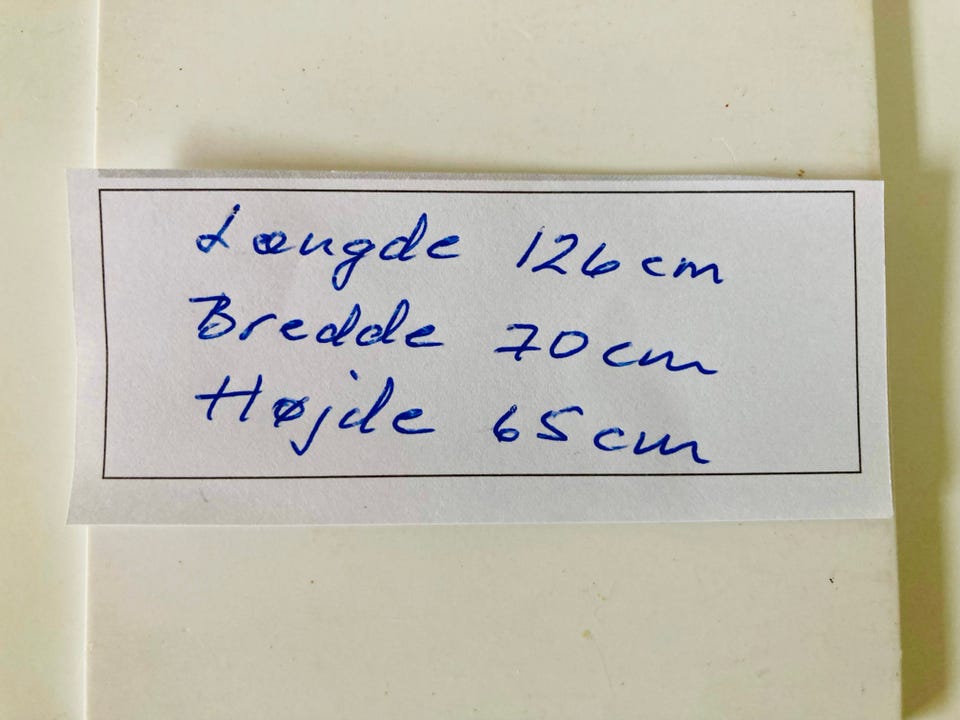 Længde 126 cm
Bredde 70 cm
Højde 65 cm